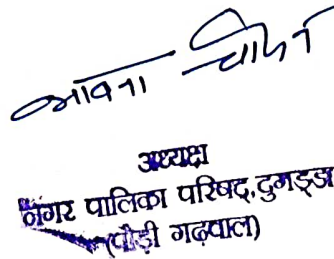 भावना चौहान
अध्यक्ष
नगर पालिका परिषद्, दुगड्डा
(पौड़ी गढ़वाल)